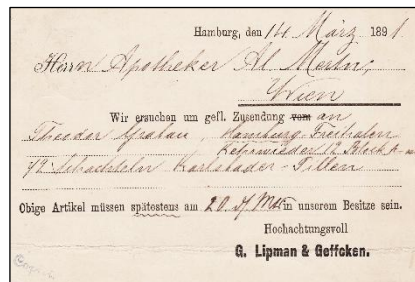 Hamburg, den 14. März 1891.
Herrn Apotheker Al.
Wien
Wir ersuchen um gefl. Zusendung vom an
Theodor Hamburg-Freihafen
Block
72 Schachteln Karlsbader-Pillen
Obige Artikel müssen spätestens am 20. d/Mts in unserem Besitze sein.
Hochachtungsvoll
G. Lipman & Geffcken.